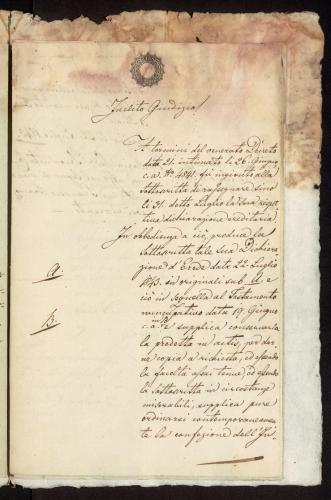 Inclito Giudizio!
A termini del venerato Decreto
data 21. intimato li 26. Giugno
c. a. No. 4841. fù ingiunto alla
Sottoscritta di rassegnare sino
li 31. detto Luglio la sua rispet
tiva dichiarazione ereditaria.
In obbedienza a ciò, produce la
Sottoscritta tale sua Dichiara
zione d'Erede data 22. Luglio
A.
1843. in originali sub A. e
ciò in sequella al Testamento
nuncupativo data 19. Giugno
B.
c. a. in B e supplica conservarsi
la predetta in actis, per dar
ne copia a richiesta, ed essendo
la facoltà assai tenue, ed essendo
la sottoscritta in circostanze
miserabili, supplica pure
ordinarsi contemporaneamen
te la confezione dell'In.